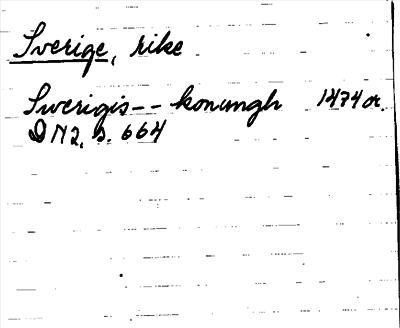 Sverige, rike
Swerigis-- konungh 1474 or.
DN2, s. 664